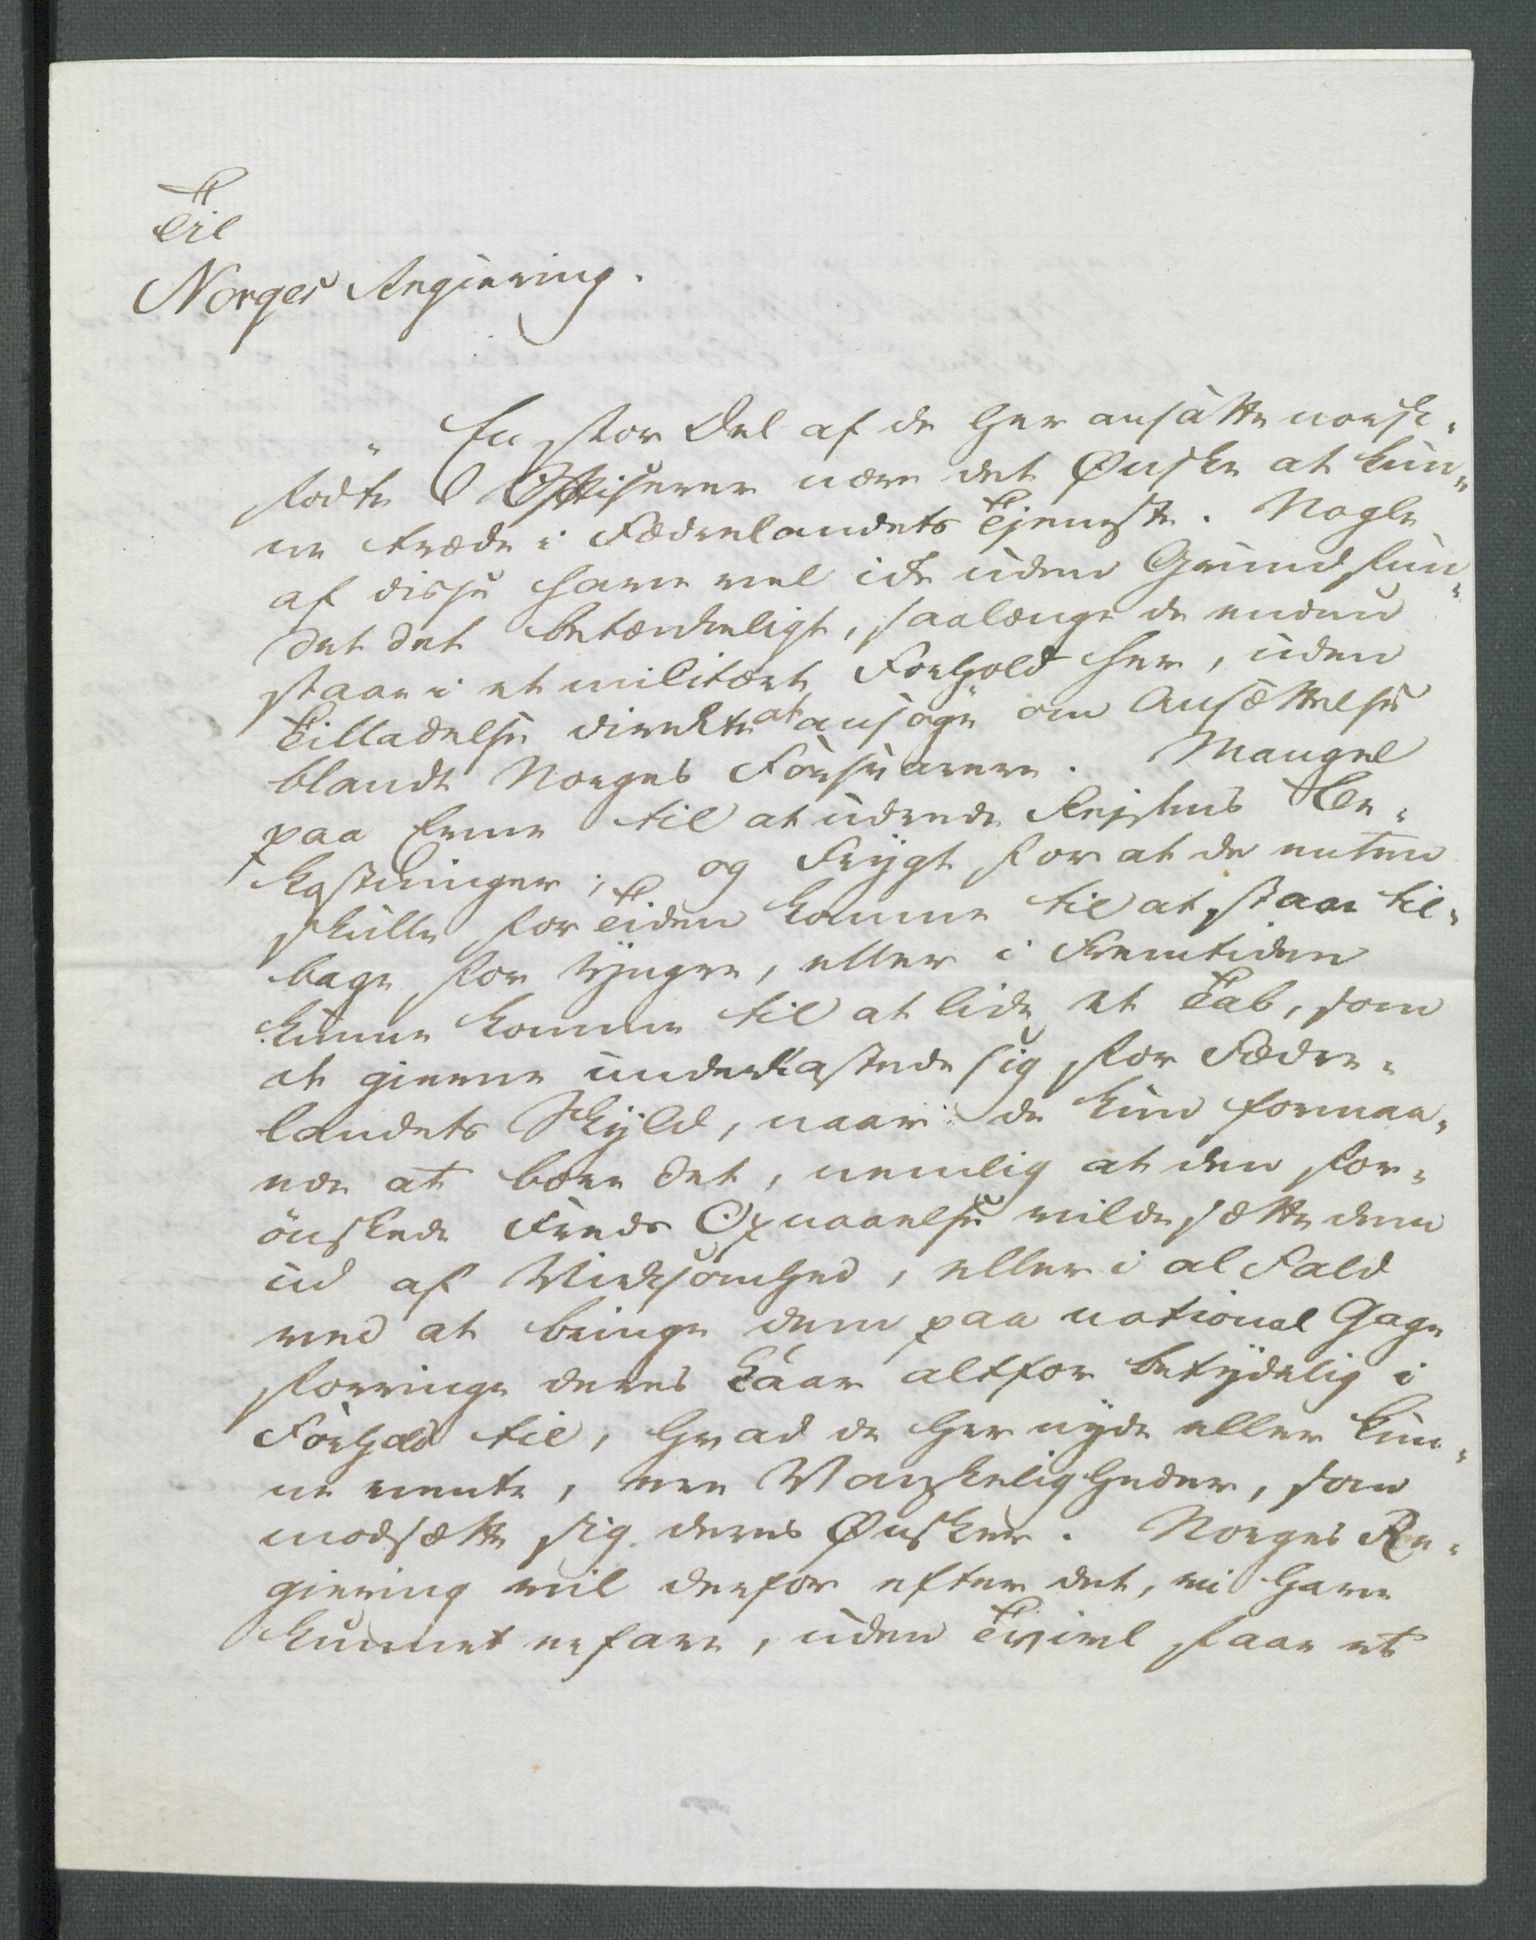 Til
Norges Regiering.
En stor Del af de her ansatte norsk-
fødte Offiserer nære det Ønske at kun-
ne træde i Fædrelandets Tjeneste. Nogle
af disse have vel ikke uden Grund fun-
det det betænkeligt, saalænge de endnu
staae i et militært Forhold her, uden
Tilladelse direkte at ansøge om Ansættelse
blandt Norges Forsvarere. Mangel
paa Evne til at udrede Rejsens Be-
kostninger, og Frygt for at de enten
skulle for Tiden komme til at staae til-
bage for Yngre, eller i Fremtiden
kunne komme til at lide et Tab, som
de gierne underkastede sig for Fædre-
landets Skyld, naar de kun formaa-
ede at bære det, nemlig at den for-
önskede Freds Opnaaelse vilde sætte dem
ud af Virksomhed, eller i al Fald
ved at bringe dem paa national Gage
forringe deres Kaar altfor betydelig i
Forhold til, hvad de her nyde eller kun-
ne vente, ere Vanskeligheder, som
modsætte sig deres Ønsker. Norges Re-
giering vil derfor efter det, vi have
kunnet erfare, uden Tvivl faae et